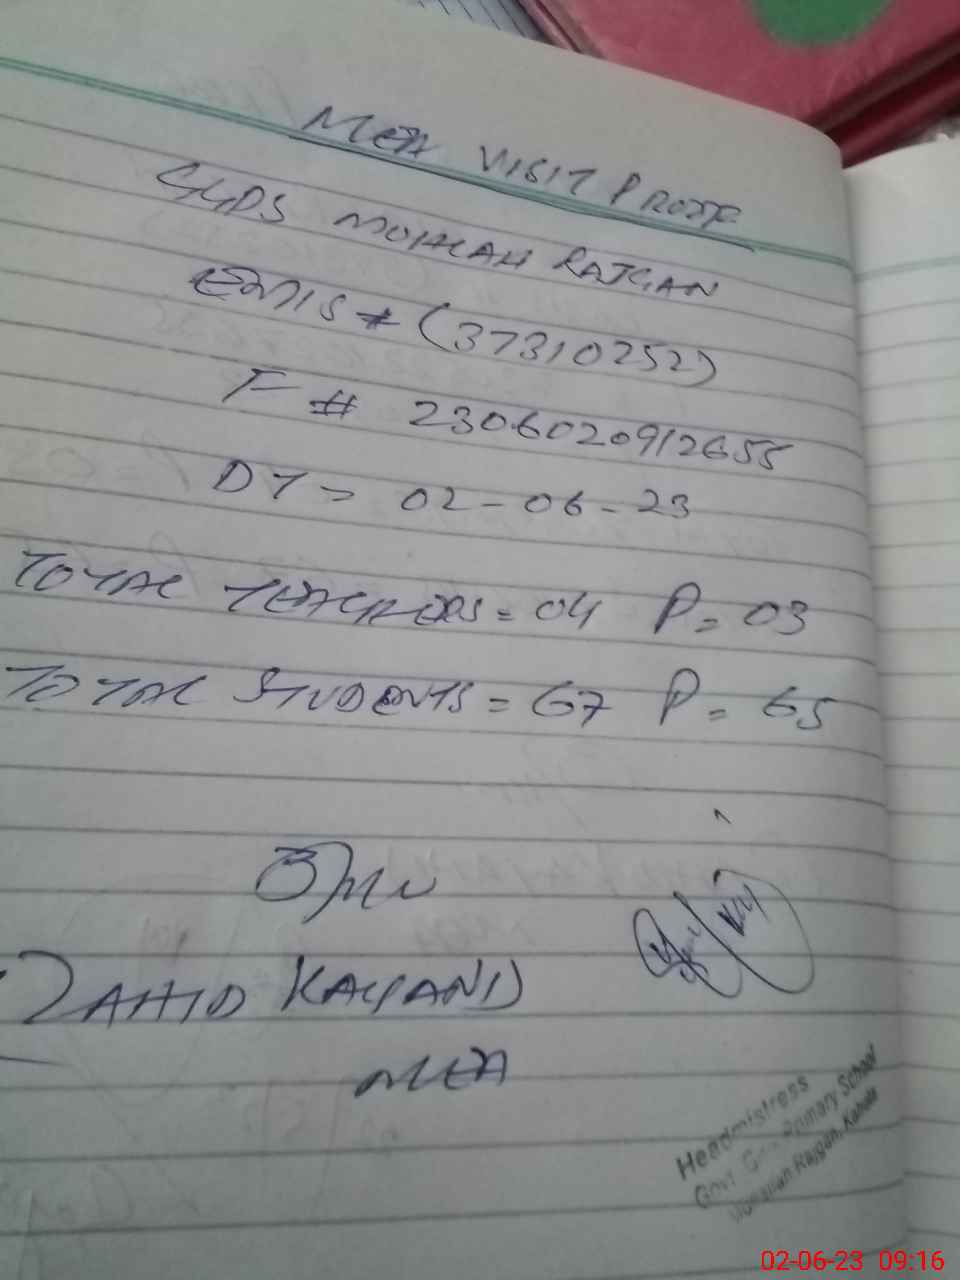 MEA VISIT PROOF
GGPS MOHLAH RAJGAN
EMIS # (37310252)
F # 2306020912655
DT = 02-06-23
TOTAL TEACHERS = 04 P = 03
TOTAL STUDENTS = 67 P = 65
(ZAHID KAYANI)
MEA
Headmistress
Govt Primary School
Rajgan Kahuta
02-06-23 09:16